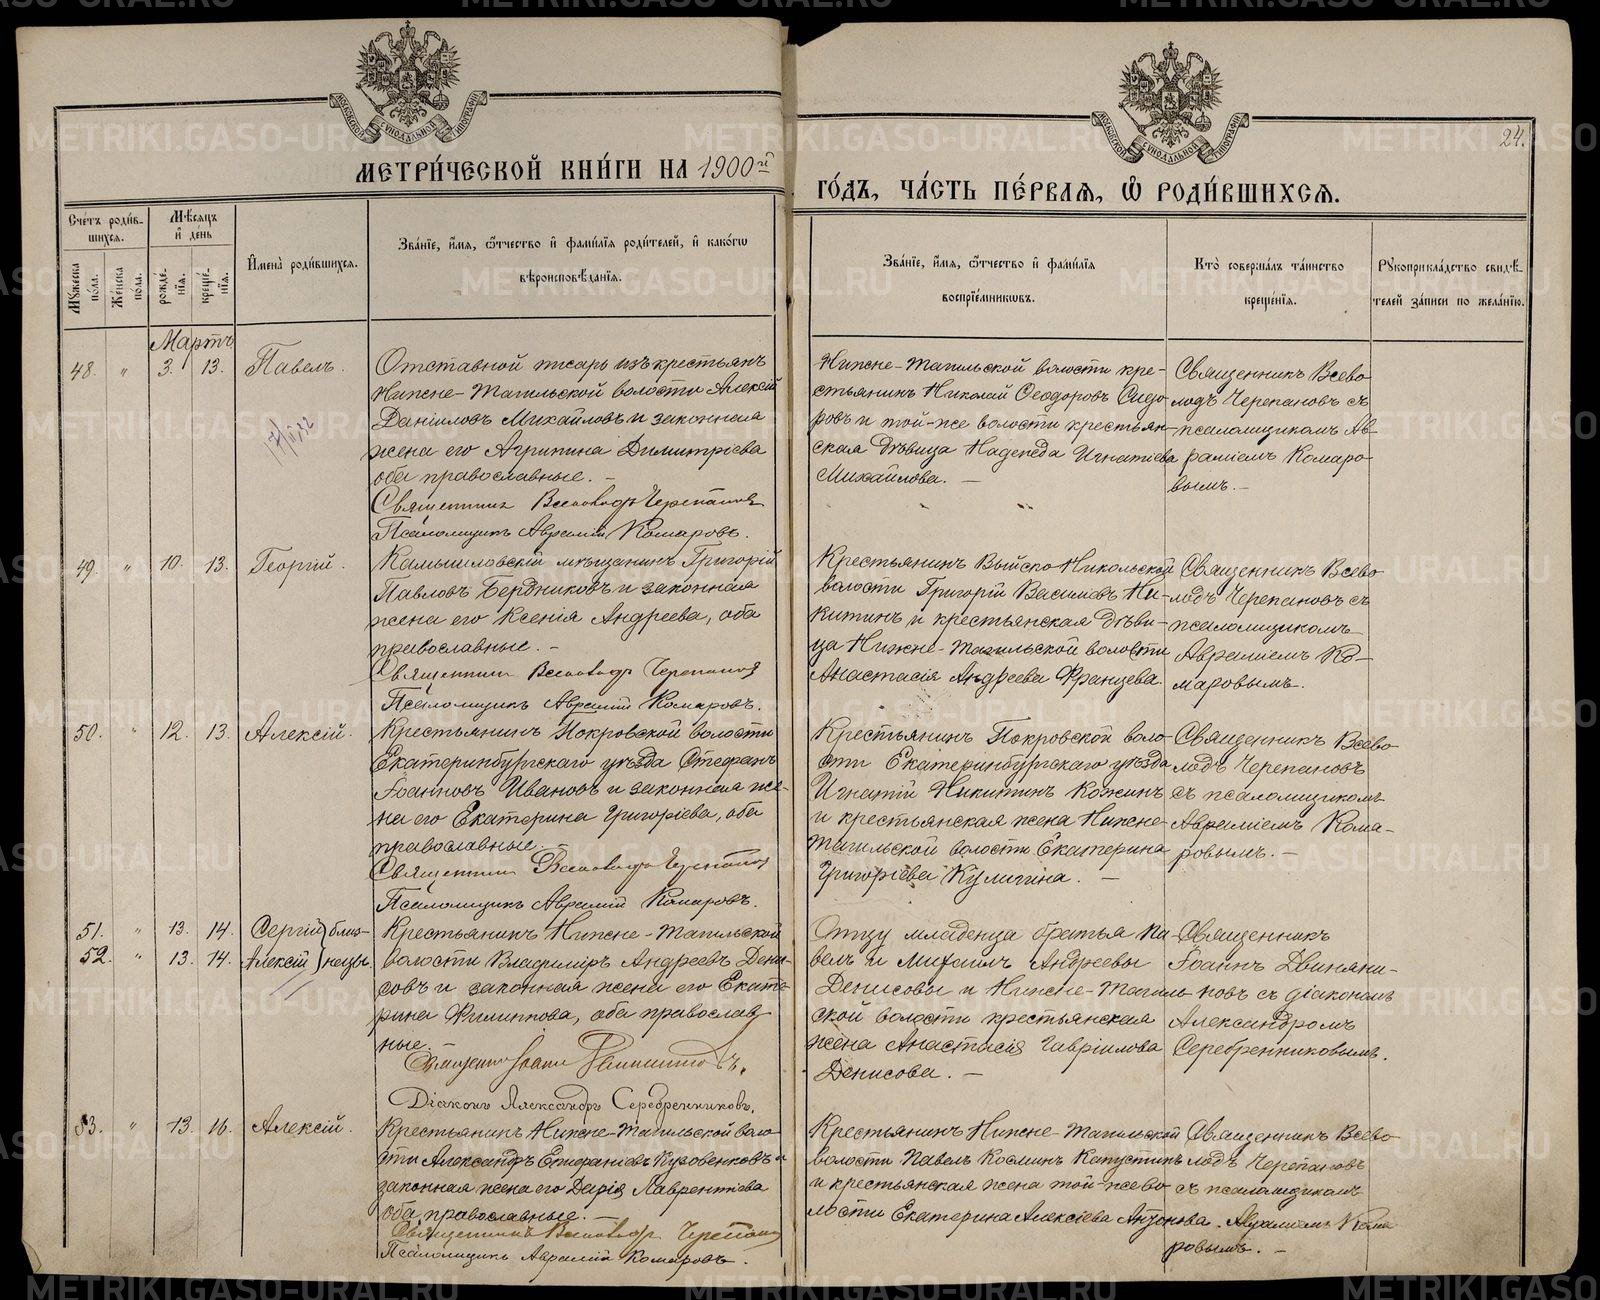 МЕТРИ́ЧЕСКОЙ КНИ́ГИ НА 1900й
ГО́ДЪ, ЧА́СТЬ ПЕ́РВАѦ, Ѡ҆ РОДИ́ВШИХСѦ.
24.
МОСКОВСКОЙ СУНОДАЛЬНОЙ ТИПОГРАФІИ
МОСКОВСКОЙ СУНОДАЛЬНОЙ ТИПОГРАФІИ
Сче́тъ роди́вшихсѧ.
Мꙋ́жеска по́ла.
Же́нска по́ла.
Мѣ́сѧцъ и҆ де́нь
рожде́нїѧ.
креще́нїѧ.
И҆мена̀ роди́вшихсѧ.
Зва́нїе, и҆́мѧ, ѻ҆́тчество и҆ фами́лїѧ роди́телей, и҆ како́гѡ
вѣроисповѣ́данїѧ.
Зва́нїе, и҆́мѧ, ѻ҆́тчество и҆ фами́лїѧ
воспрїе́мникѡвъ.
Кто̀ соверша́лъ та́инство
креще́нїѧ.
Рꙋкоприкла́дство свидѣ́-
телей за́писи по жела́нїю.
Мартъ
48. " 3. 13. Павелъ.
Отставной писарь изъ крестьянъ
Нижне-Тагильской волости Алексій
Даніиловъ Михайловъ и законная
жена его Агрипина Димитріева
оба православные. —
Священникъ Всеволодъ Черепановъ
Псаломщикъ Авраамій Комаровъ.
Нижне-Тагильской волости кре-
стьянинъ Николай Ѳеодоровъ Сидо-
ровъ и той-же волости крестьян-
ская дѣвица Надежда Игнатіева
Михайлова. —
Священникъ Всево-
лодъ Черепановъ съ
псаломщикомъ Ав-
раміемъ Комаро-
вымъ. —
49. " 10. 13. Георгій.
Камышловскій мѣщанинъ Григорій
Павловъ Бердниковъ и законная
жена его Ксенія Андреева, оба
православные. —
Священникъ Всеволодъ Черепановъ
Псаломщикъ Аврамій Комаровъ.
Крестьянинъ Выйско-Никольской
волости Григорій Василіевъ Ни-
китинъ и крестьянская дѣви-
ца Нижне-Тагильской волости
Анастасія Андреева Францева.
Священникъ Всево-
лодъ Черепановъ съ
псаломщикомъ
Авраміемъ Ко-
маровымъ.
50. " 12. 13. Алексій.
Крестьянинъ Покровской волости
Екатеринбургскаго уѣзда Стефанъ
Іоанновъ Ивановъ и законная же-
на его Екатерина Григоріева, оба
православные.
Священникъ Всеволодъ Черепановъ
Псаломщикъ Аврамій Комаровъ.
Крестьянинъ Покровской воло-
сти Екатеринбургскаго уѣзда
Игнатій Никитинъ Кожинъ
и крестьянская жена Нижне-
Тагильской волости Екатерина
Григоріева Кулигина. —
Священникъ Всево-
лодъ Черепановъ
съ псаломщикомъ
Авраміемъ Кома-
ровымъ. —
51. " 13. 14. Сергій } близ-
52. " 13. 14. Алексій } нецы.
Крестьянинъ Нижне-Тагильской
волости Владиміръ Андреевъ Дени-
совъ и законная жена его Екате-
рина Филиппова, оба православ-
ные. —
Священникъ Іоаннъ Двиняниновъ.
Діаконъ Александръ Серебренниковъ.
Отцу младенца братья Па-
велъ и Михаилъ Андреевы
Денисовы и Нижне-Тагиль-
ской волости крестьянская
жена Анастасія Гавріилова
Денисова. —
Священникъ
Іоаннъ Двиняни-
новъ съ діакономъ
Александромъ
Серебренниковымъ.
53. " 13. 16. Алексій.
Крестьянинъ Нижне-Тагильской воло-
сти Александръ Епифаніевъ Кузовенковъ и
законная жена его Дарія Лаврентіева
оба православные. —
Священникъ Всеволодъ Черепановъ
Псаломщикъ Аврамій Комаровъ.
Крестьянинъ Нижне-Тагильской
волости Павелъ Косминъ Капустинъ
и крестьянская жена той-же во-
лости Екатерина Алексіева Антонова.
Священникъ Всево-
лодъ Черепановъ
съ псаломщикомъ
Авраміемъ Кома-
ровымъ. —
METRIKI.GASO-URAL.RU